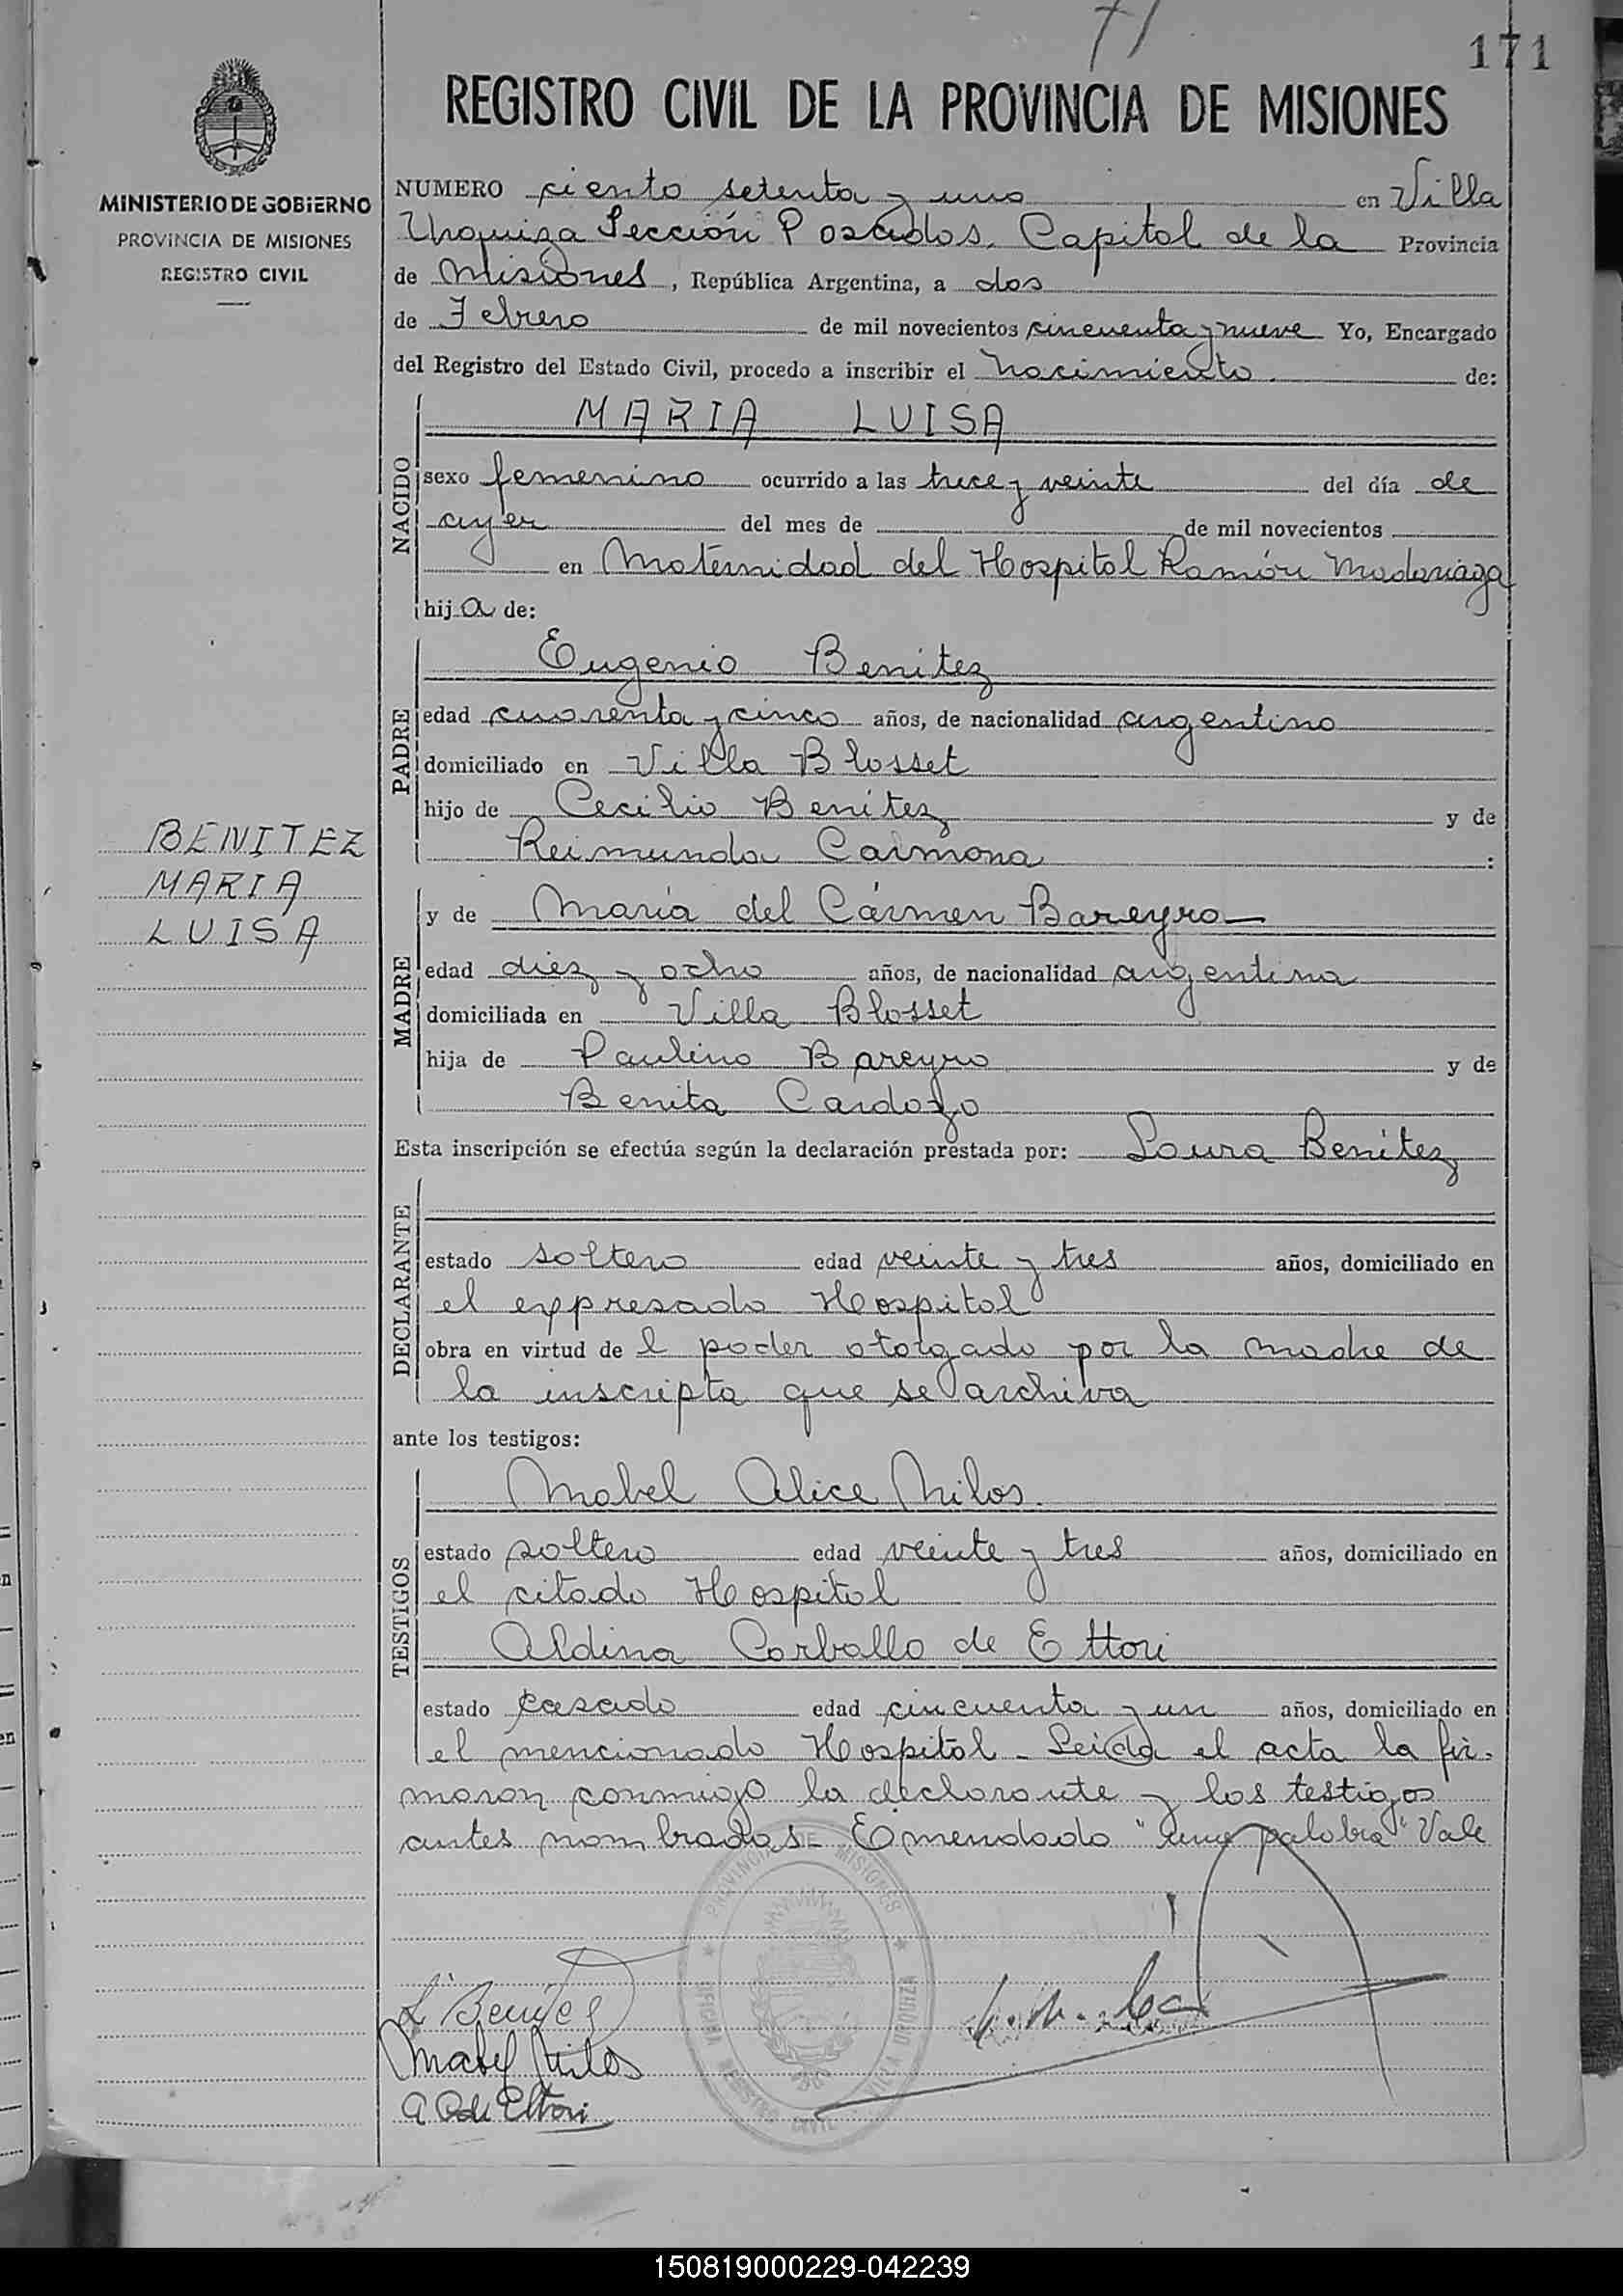 71
171
REGISTRO CIVIL DE LA PROVINCIA DE MISIONES
MINISTERIO DE GOBIERNO
PROVINCIA DE MISIONES
REGISTRO CIVIL
NUMERO ciento setenta y uno en Villa
Urquiza Sección Posadas, Capital de la Provincia
de Misiones, República Argentina, a dos
de Febrero de mil novecientos cincuenta y nueve Yo, Encargado
del Registro del Estado Civil, procedo a inscribir el nacimiento de:
NACIDO
MARIA LUISA
sexo femenino ocurrido a las trece y veinte del día de
ayer del mes de de mil novecientos
en Maternidad del Hospital Ramón Madariaga
hija de:
PADRE
Eugenio Benitez
edad cuarenta y cinco años, de nacionalidad argentino
domiciliado en Villa Blosset
hijo de Cecilio Benítez y de
Reimunda Carmona :
BENITEZ
MARIA
LUISA
MADRE
y de María del Cármen Bareyro
edad diez y ocho años, de nacionalidad argentina
domiciliada en Villa Blosset
hija de Paulino Bareyro y de
Benita Cardozo
Esta inscripción se efectúa según la declaración prestada por: Laura Benítez
DECLARANTE
estado soltero edad veinte y tres años, domiciliado en
el expresado Hospital
obra en virtud de l poder otorgado por la madre de
la inscripta que se archiva
ante los testigos:
TESTIGOS
Mabel Alice Milos
estado soltero edad veinte y tres años, domiciliado en
el citado Hospital
Aldina Carballo de Ettori
estado casado edad cincuenta y un años, domiciliado en
el mencionado Hospital - Leida el acta la fir-
maron conmigo la declarante y los testigos
antes nombrados - Emendado "una palabra" Vale
PROVINCIA DE MISIONES
OFICINA REGISTRO CIVIL
VILLA URQUIZA
L Benítez
Mabel Milos
A C de Ettori
150819000229-042239